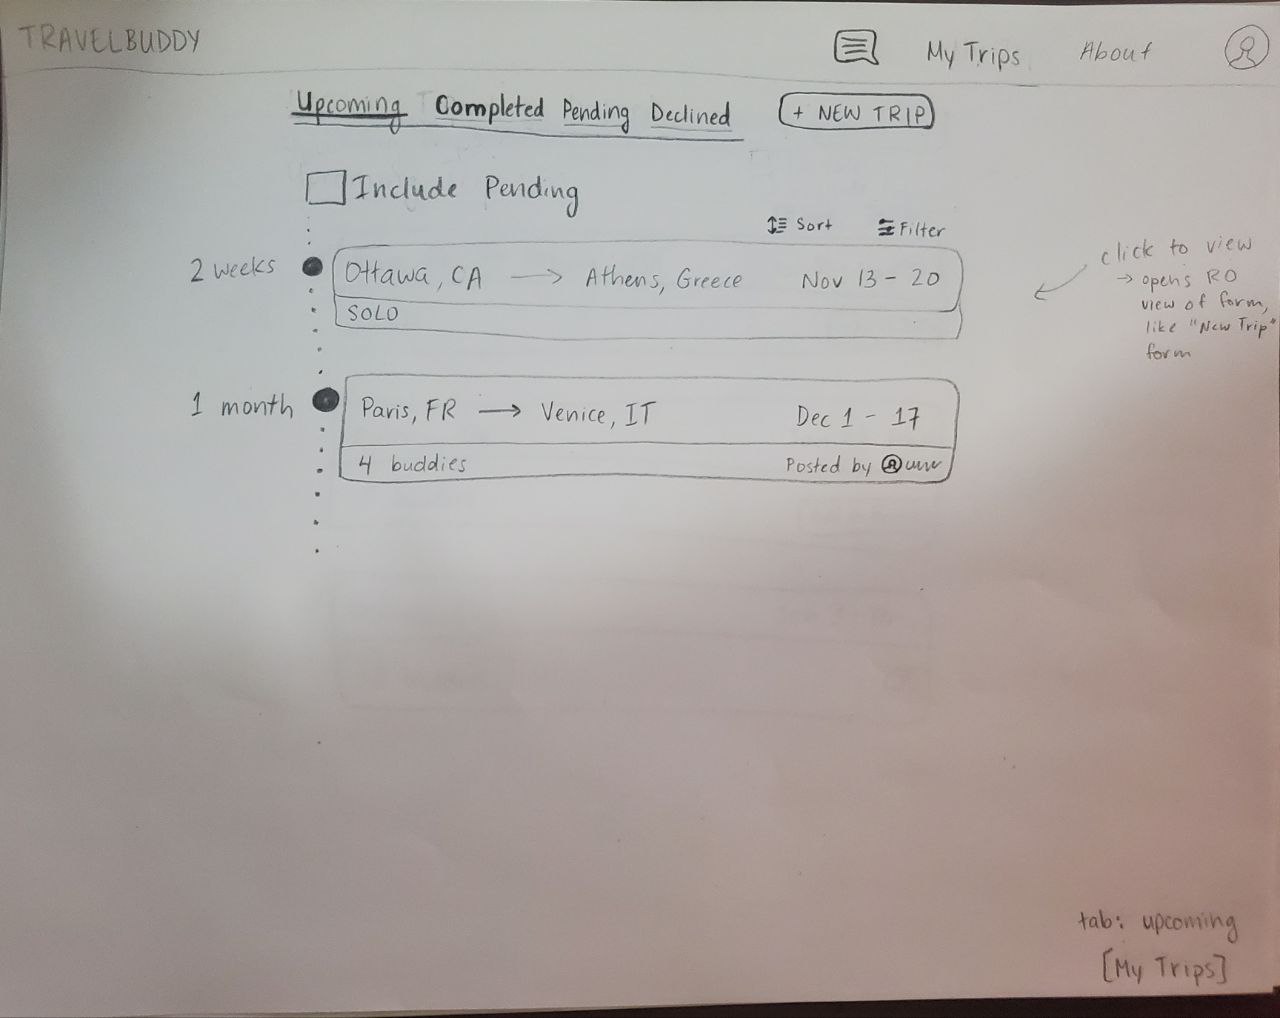 TRAVELBUDDY
My Trips
About
Upcoming Completed Pending Declined
+ NEW TRIP
Include Pending
Sort
Filter
2 weeks
Ottawa, CA → Athens, Greece
Nov 13 - 20
SOLO
click to view
→ opens RO
view of form,
like "New Trip"
form
1 month
Paris, FR → Venice, IT
Dec 1 - 17
4 buddies
Posted by
tab: upcoming
[My Trips]